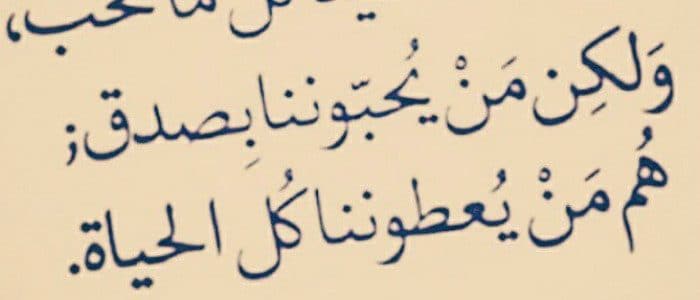 كل ما نحب،
وَلكِن مَنْ يُحبّوننا بِصدق؛
هُم مَنْ يُعطوننا كُل الحياة.